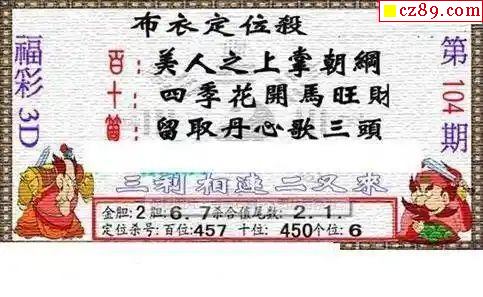 cz89.com
布衣定位殺
福彩3D
第104期
百：美人之上掌朝綱
十：四季花開馬旺財
個：留取丹心歌三頭
三利相連二又來
金胆:2胆:6.7杀合值尾数:2.1.
定位杀号:百位:457 十位:450个位:6